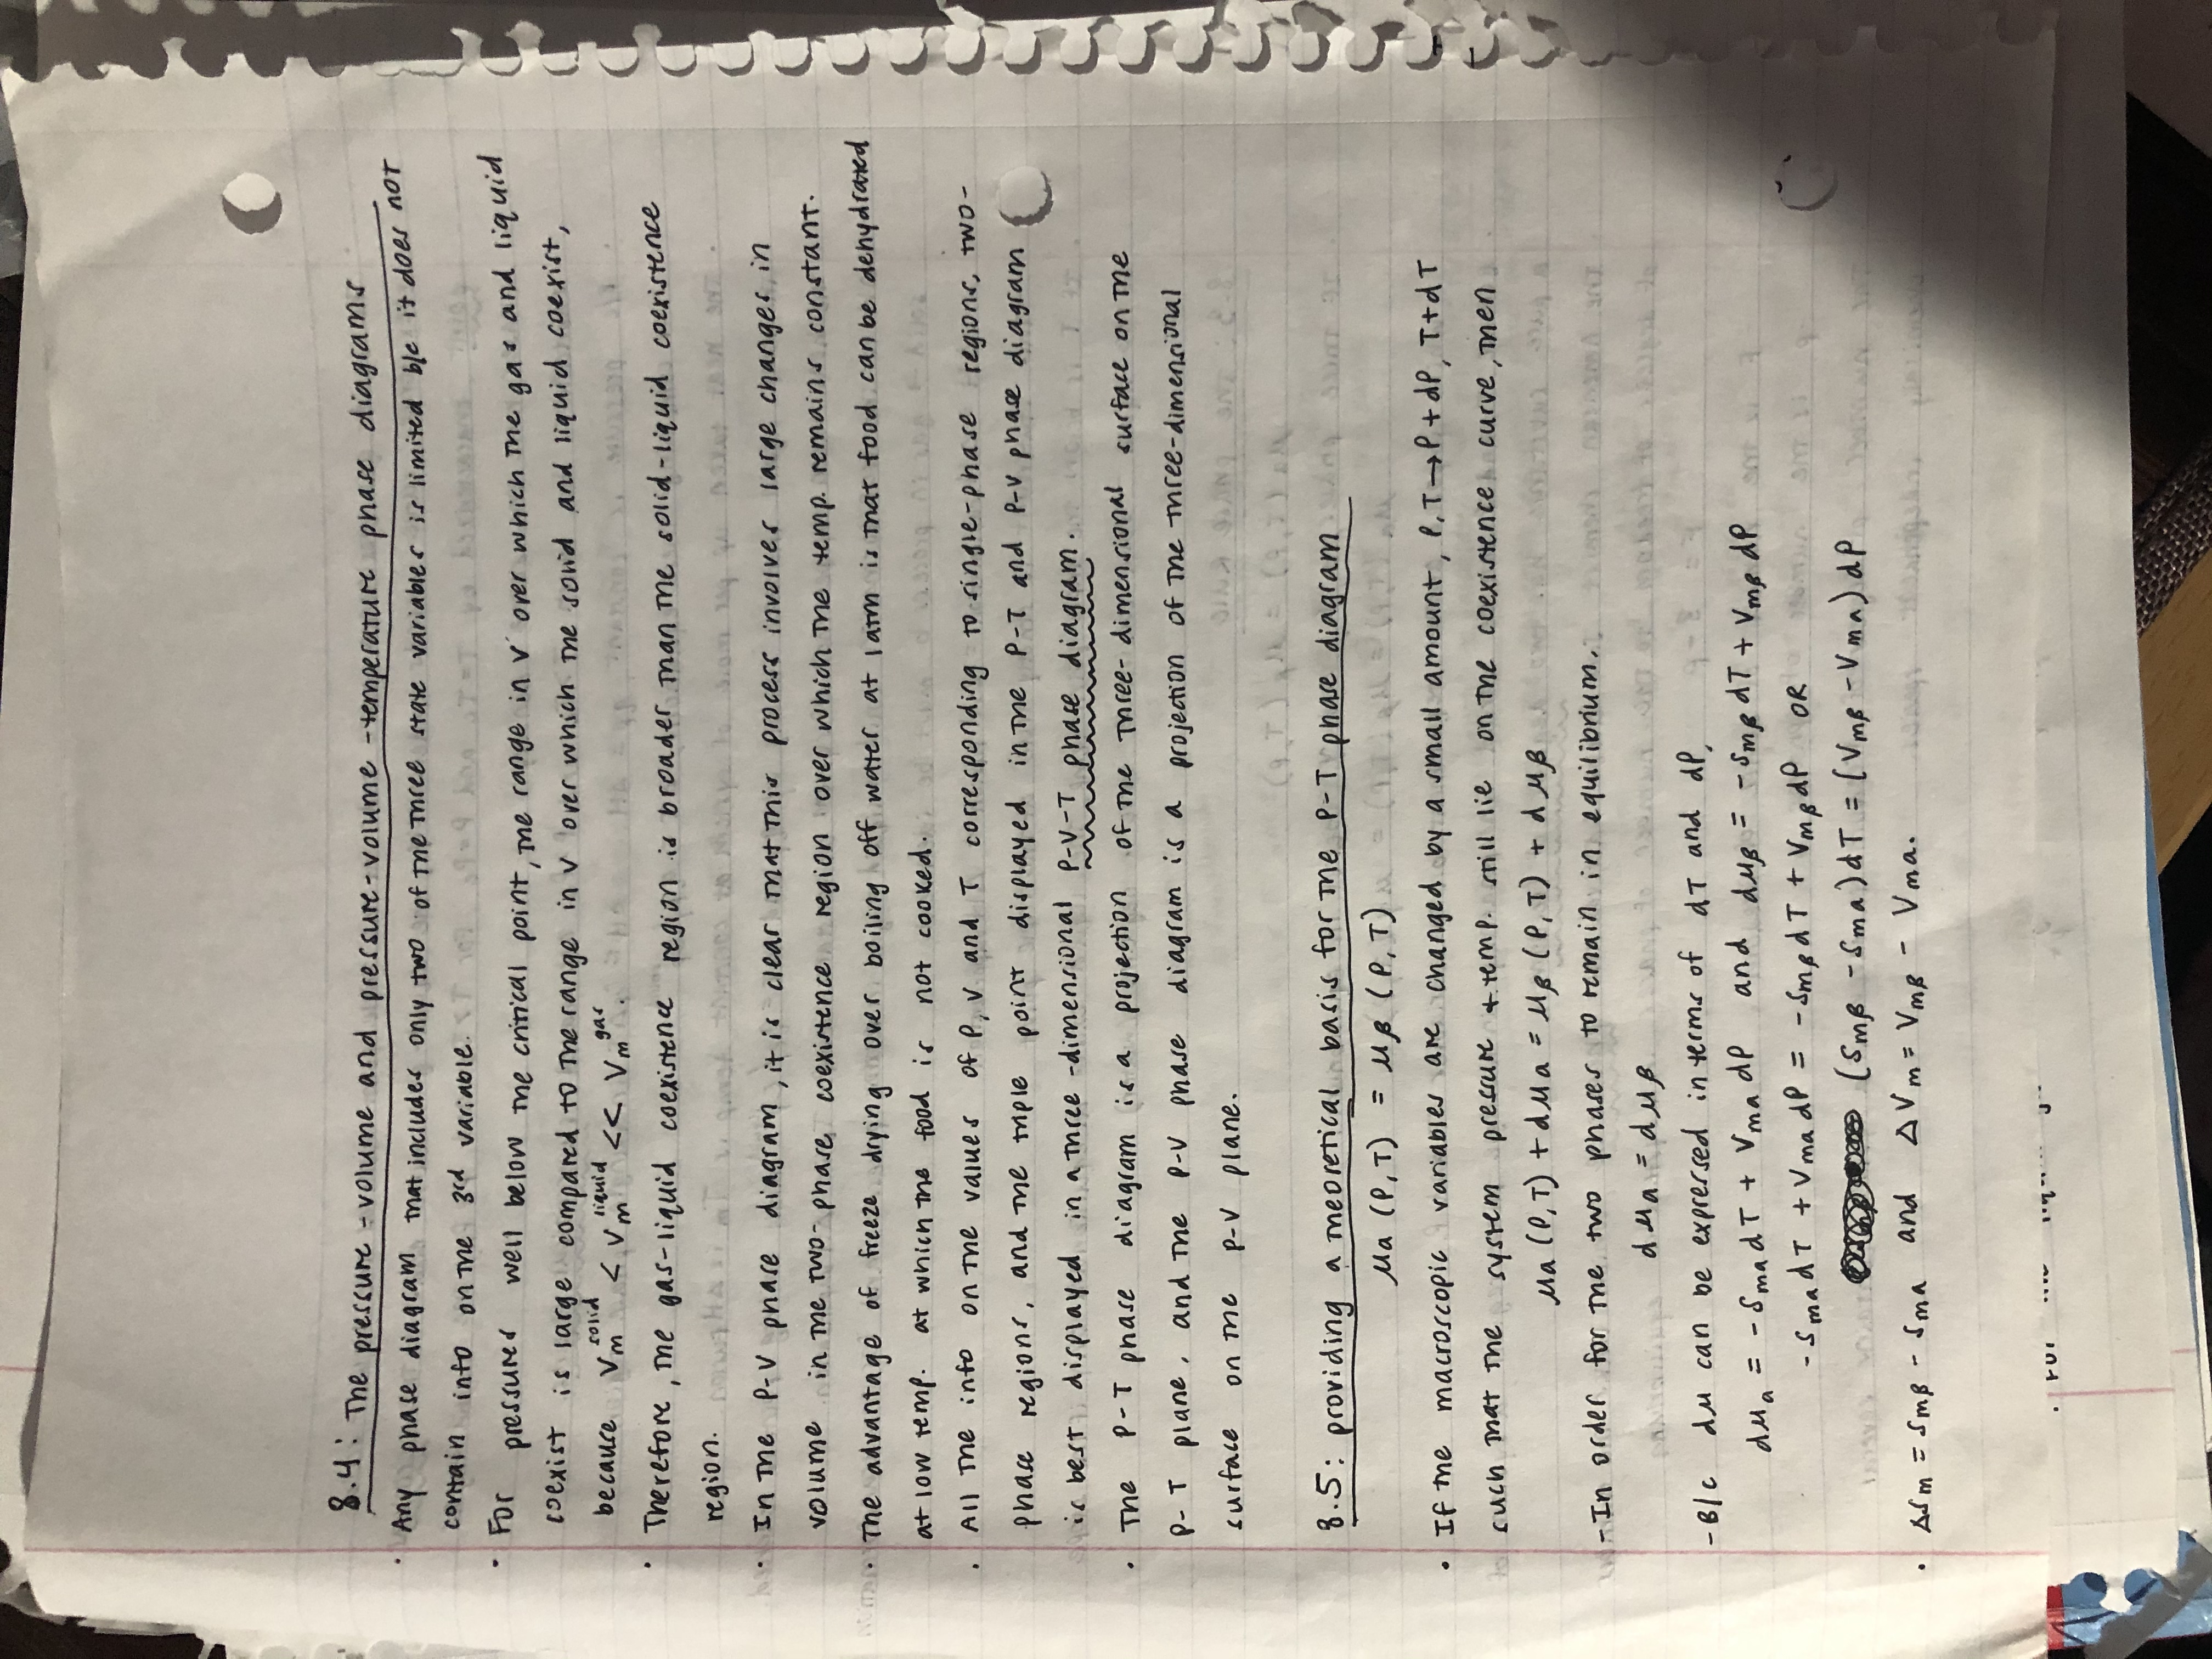 8.4: The pressure-volume and pressure-volume-temperature phase diagrams
· Any phase diagram that includes only two of the three state variables is limited b/c it does not
contain info on the 3rd variable.
· For pressures well below the critical point, the range in V over which the gas and liquid
coexist is large compared to the range in V over which the solid and liquid coexist,
because Vm^solid < Vm^liquid << Vm^gas.
· Therefore, the gas-liquid coexistence region is broader than the solid-liquid coexistence
region.
· In the P-V phase diagram, it is clear that this process involves large changes in
volume in the two-phase coexistence region over which the temp. remains constant.
· The advantage of freeze drying over boiling off water at 1atm is that food can be dehydrated
at low temp. at which the food is not cooked.
· All the info on the values of P, V and T corresponding to single-phase regions, two-
phase regions, and the triple point displayed in the P-T and P-V phase diagram
is best displayed in a three-dimensional P-V-T phase diagram.
· The P-T phase diagram is a projection of the three-dimensional surface on the
P-T plane, and the P-V phase diagram is a projection of the three-dimensional
surface on the P-V plane.
8.5: providing a theoretical basis for the P-T phase diagram
μa (P,T) = μβ (P,T)
· If the macroscopic variables are changed by a small amount, P,T→P+dP, T+dT
such that the system pressure + temp. still lie on the coexistence curve, then
μa (P,T) + dμa = μβ (P,T) + dμβ
-In order for the two phases to remain in equilibrium.
dμa = dμβ
-B/c dμ can be expressed in terms of dT and dP,
dμa = -Sma dT + Vma dP and dμβ = -Smβ dT + Vmβ dP
-Sma dT + Vma dP = -Smβ dT + Vmβ dP OR
(Smβ - Sma)dT = (Vmβ - Vma) dP
· ΔSm = Smβ - Sma and ΔVm = Vmβ - Vma.